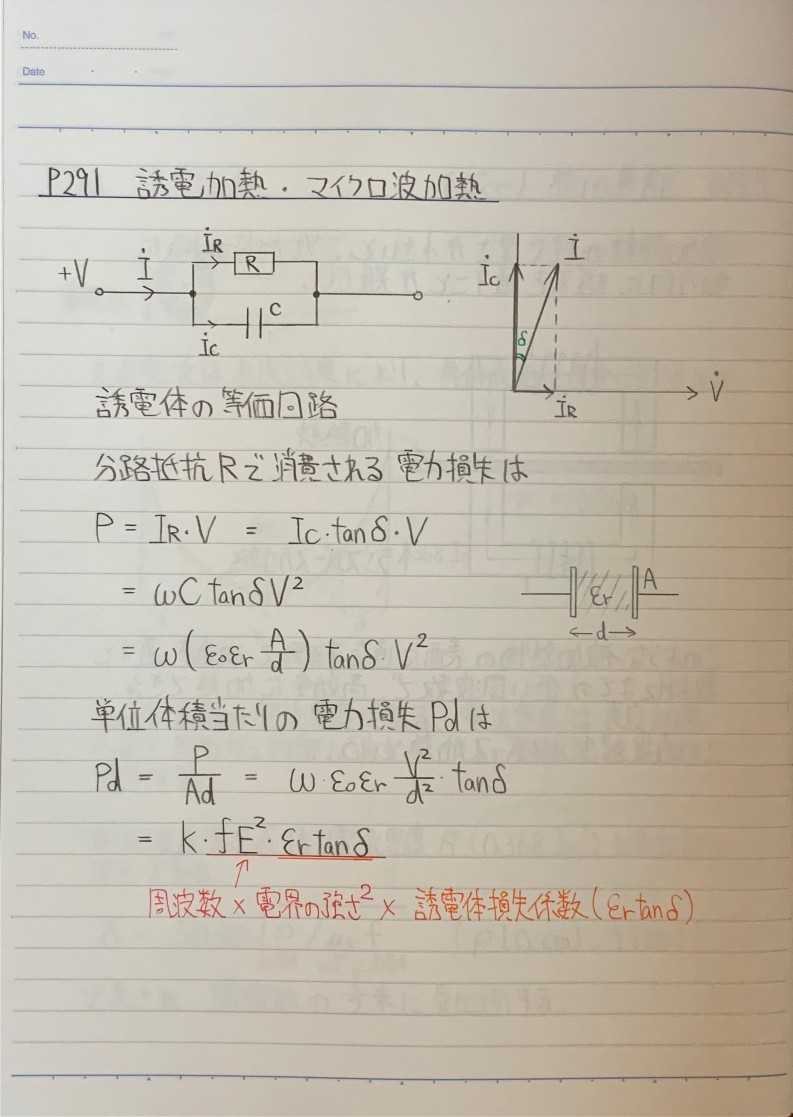 No.
Date
P291 誘電加熱・マイクロ波加熱
+V İ İR R C İC
İC İ δ İR V̇
誘電体の等価回路
分路抵抗Rで消費される電力損失は
P = IR・V = IC・tanδ・V
= ωC tanδV²
εr A d
= ω(ε0εr A/d) tanδ・V²
単位体積当たりの電力損失Pdは
Pd = P/Ad = ω・ε0εr V²/d²・tanδ
= k・fE²・εr tanδ
周波数×電界の強さ²×誘電体損失係数(εr tanδ)